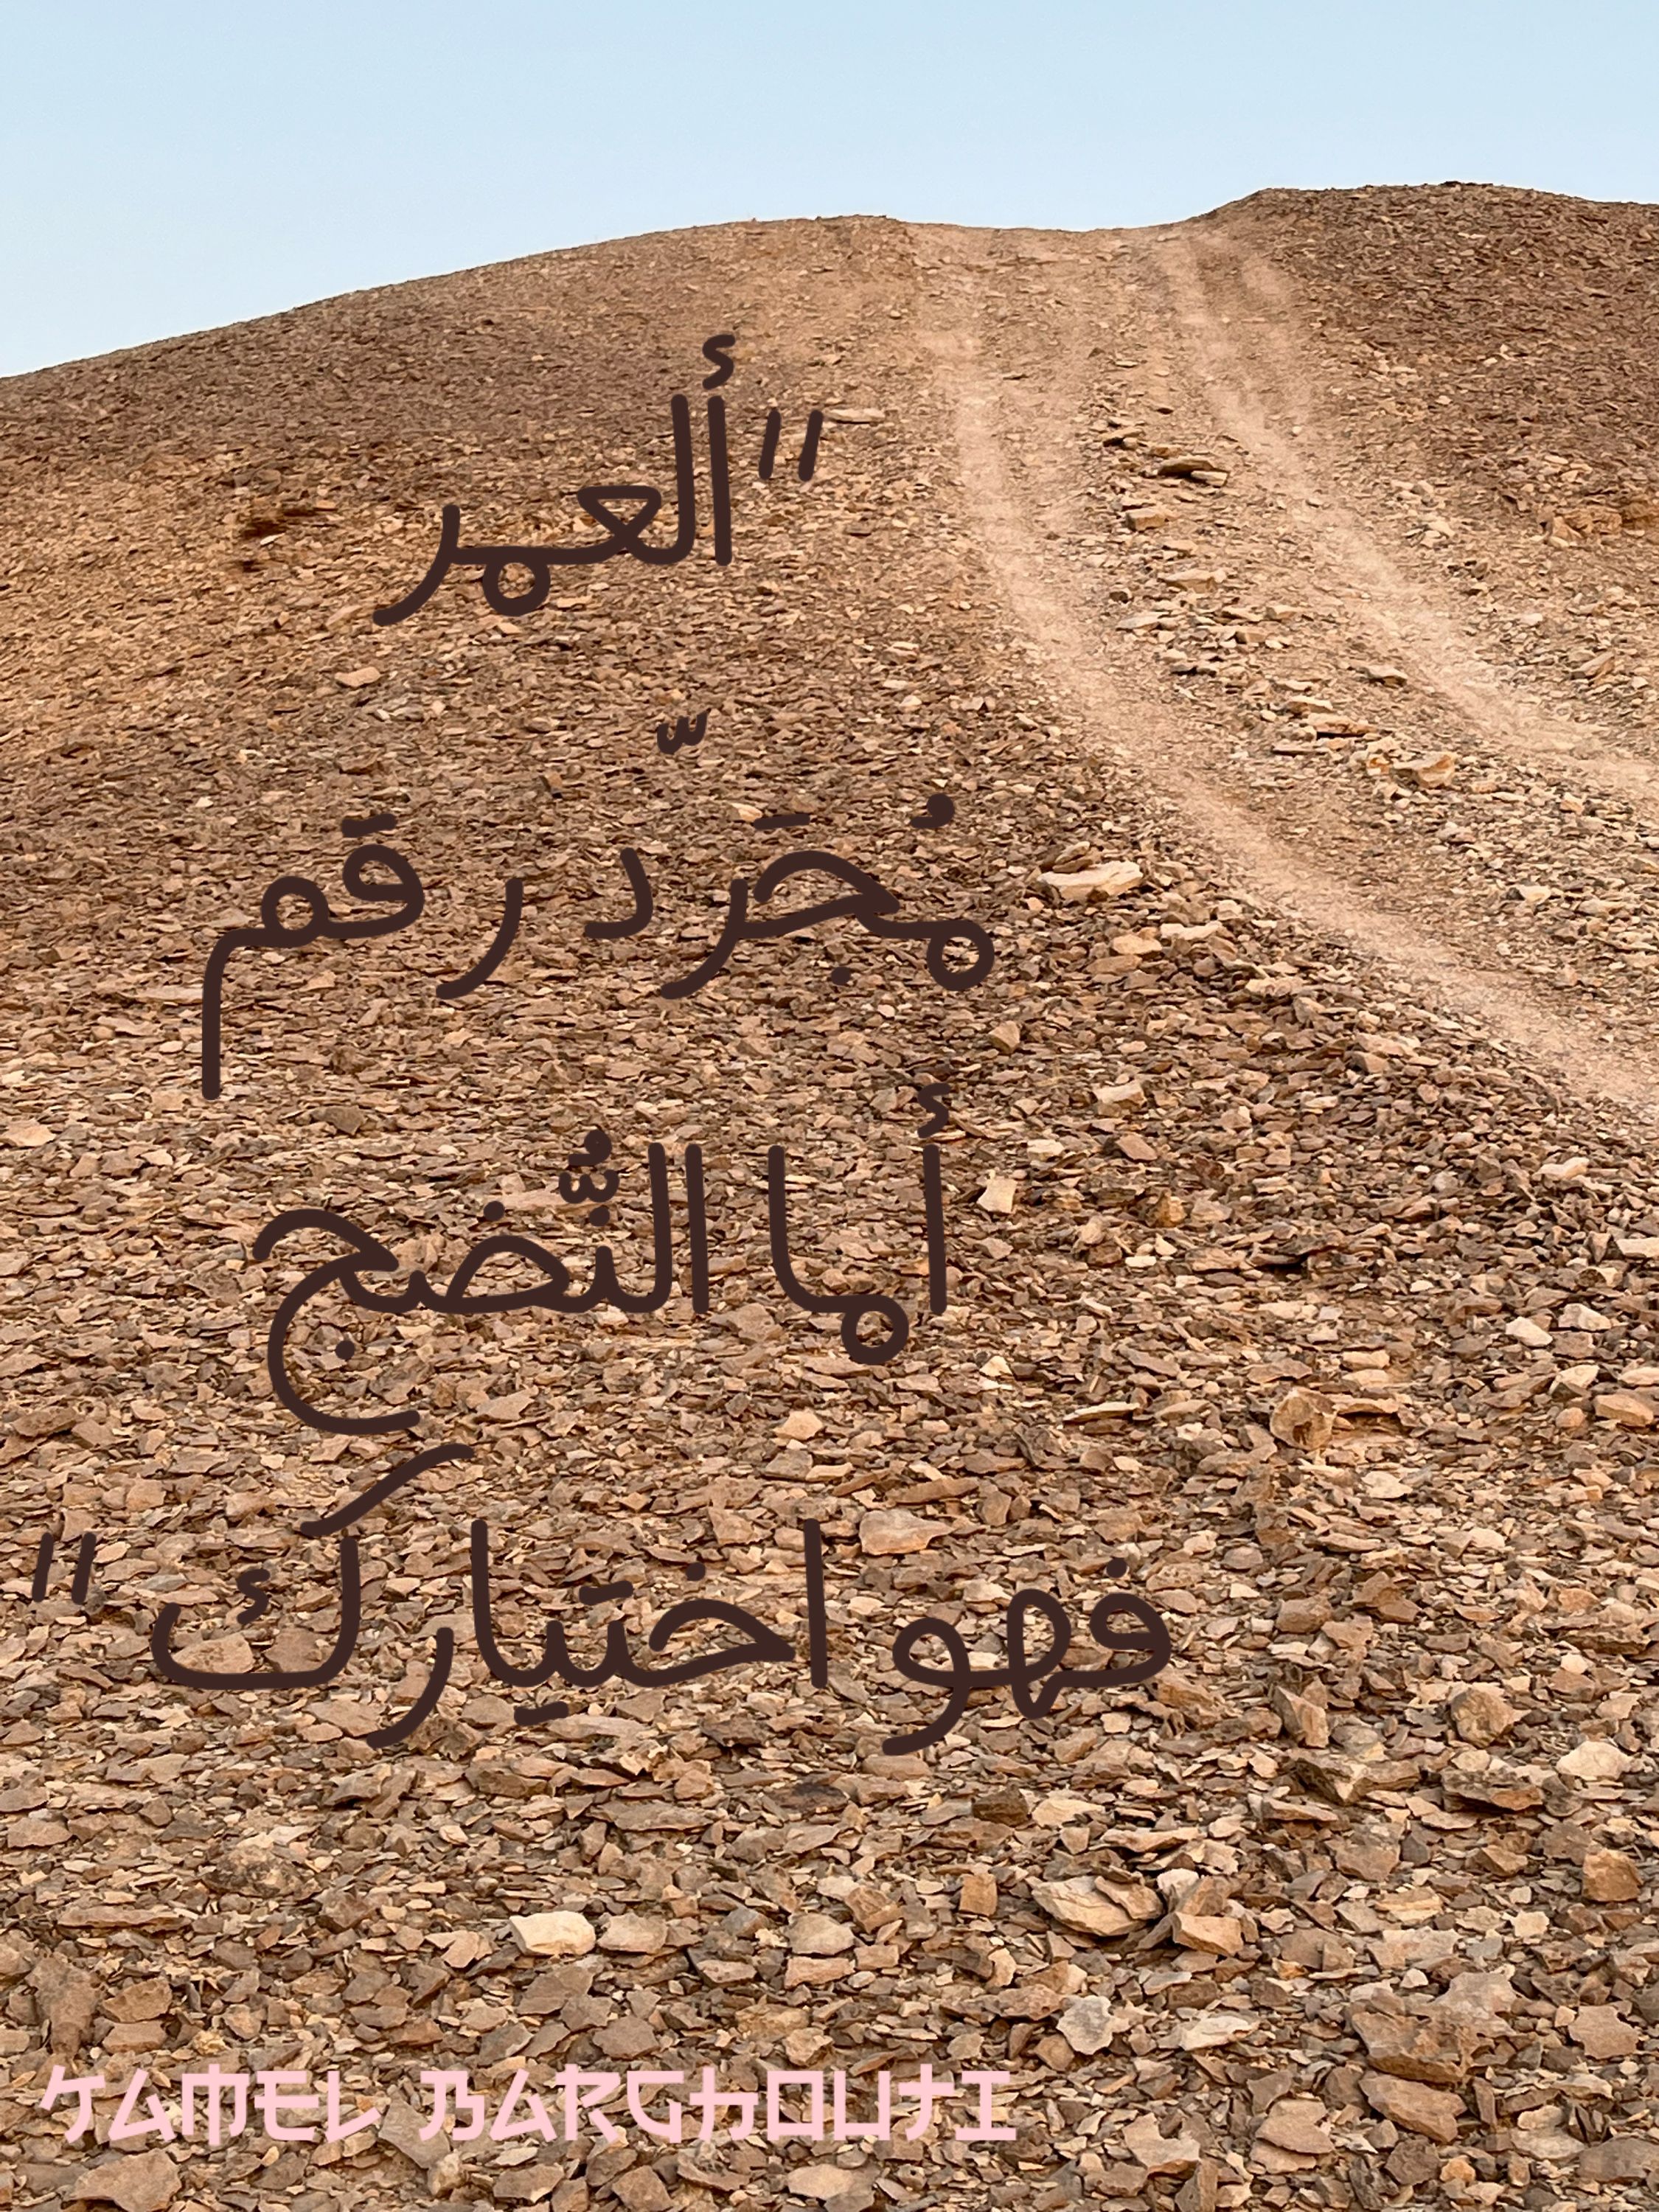 "ألعمر
مُجَرّد رقم
أما النُّضج
فهو اختيارك"
JAMEL BARGHOUTI